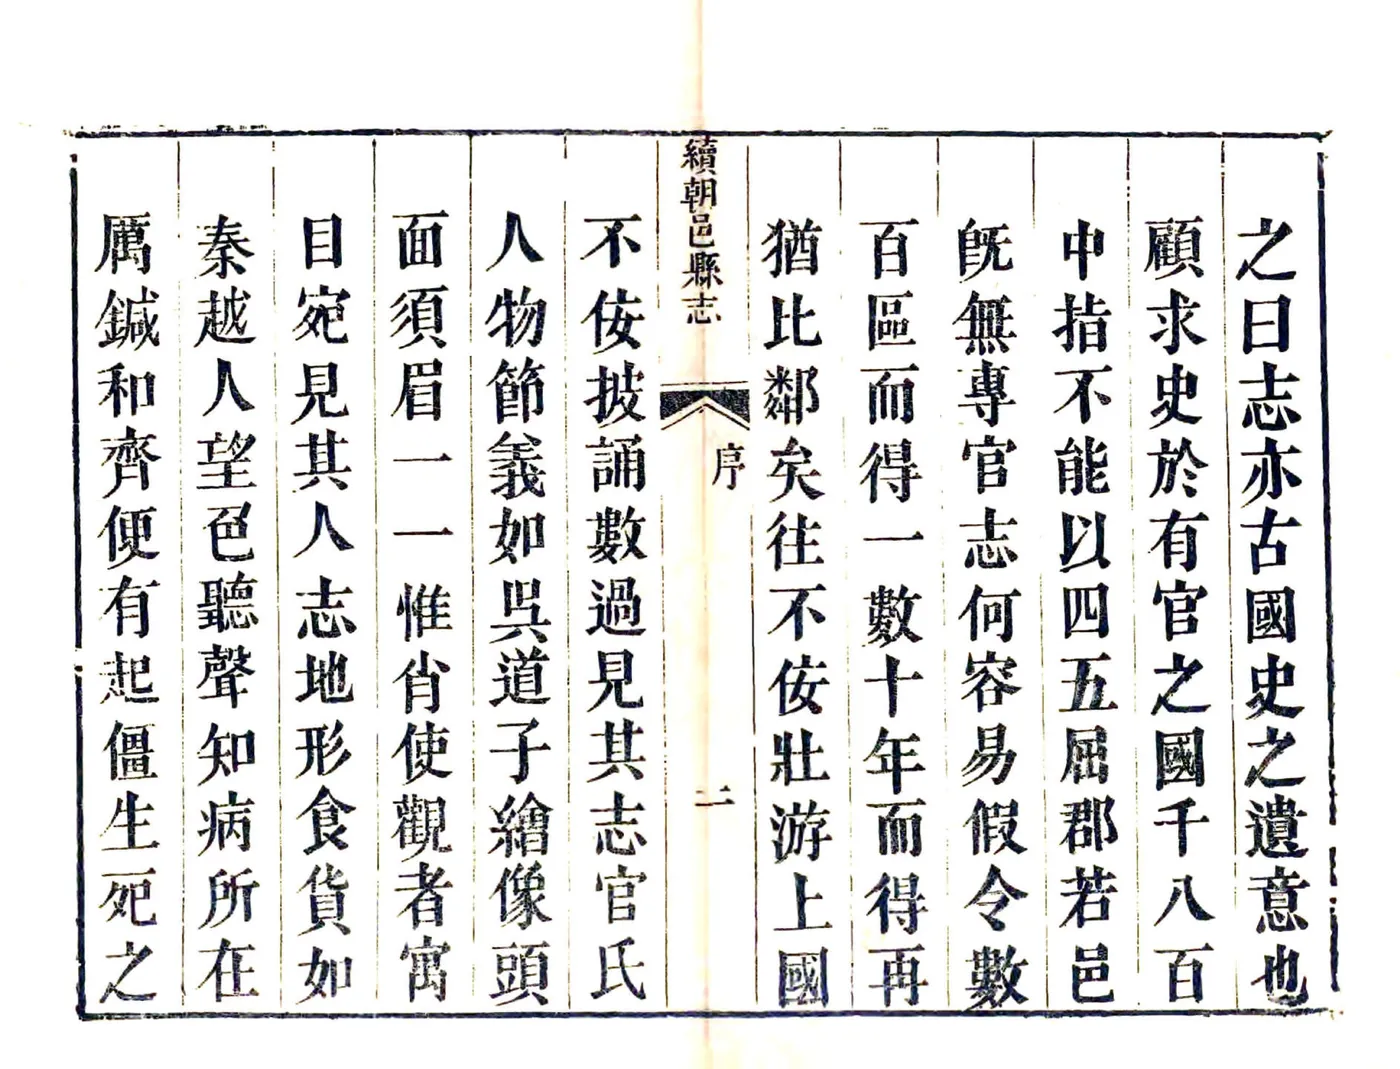 之曰志亦古國史之遺意也
顧求史於有官之國千八百
中指不能以四五屈郡若邑
旣無專官志何容易假令數
百區而得一數十年而得再
猶比鄰矣往不佞壯游上國
續朝邑縣志
序
二
不佞披誦數過見其志官氏
人物節義如吳道子繪像頭
面須眉一一惟肖使觀者寓
目宛見其人志地形食貨如
秦越人望色聽聲知病所在
厲鍼和齊便有起僵生死之